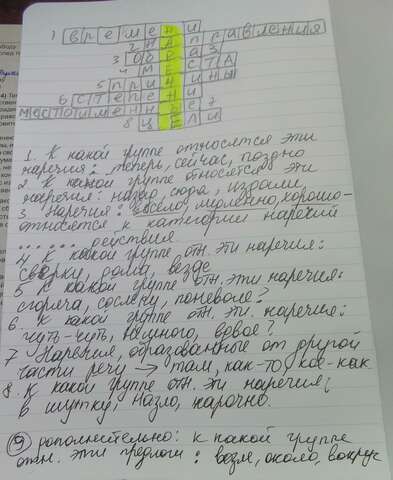 1 времени
2 направления
3 образ
4 места
5 причины
6 степени
местоименные 7
8 цели
1. К какой группе относятся эти
наречия: теперь, сейчас, поздно
2. К какой группе относятся эти
наречия: назад, сюда, издали
3. Наречия: весело, медленно, хорошо-
относятся к категории наречий
...... действия
4 К какой группе отн. эти наречия:
сверху, дома, везде
5 К какой группе отн. эти наречия:
сгоряча, сослепу, поневоле?
6. К какой группе отн. эти наречия:
чуть-чуть, немного, вдвое?
7 Наречия, образованные от другой
части речи → там, как-то, кое-как
8. К какой группе отн. эти наречия:
в шутку, назло, нарочно.
9 дополнительно: к какой группе
отн. эти предлоги: возле, около, вокруг